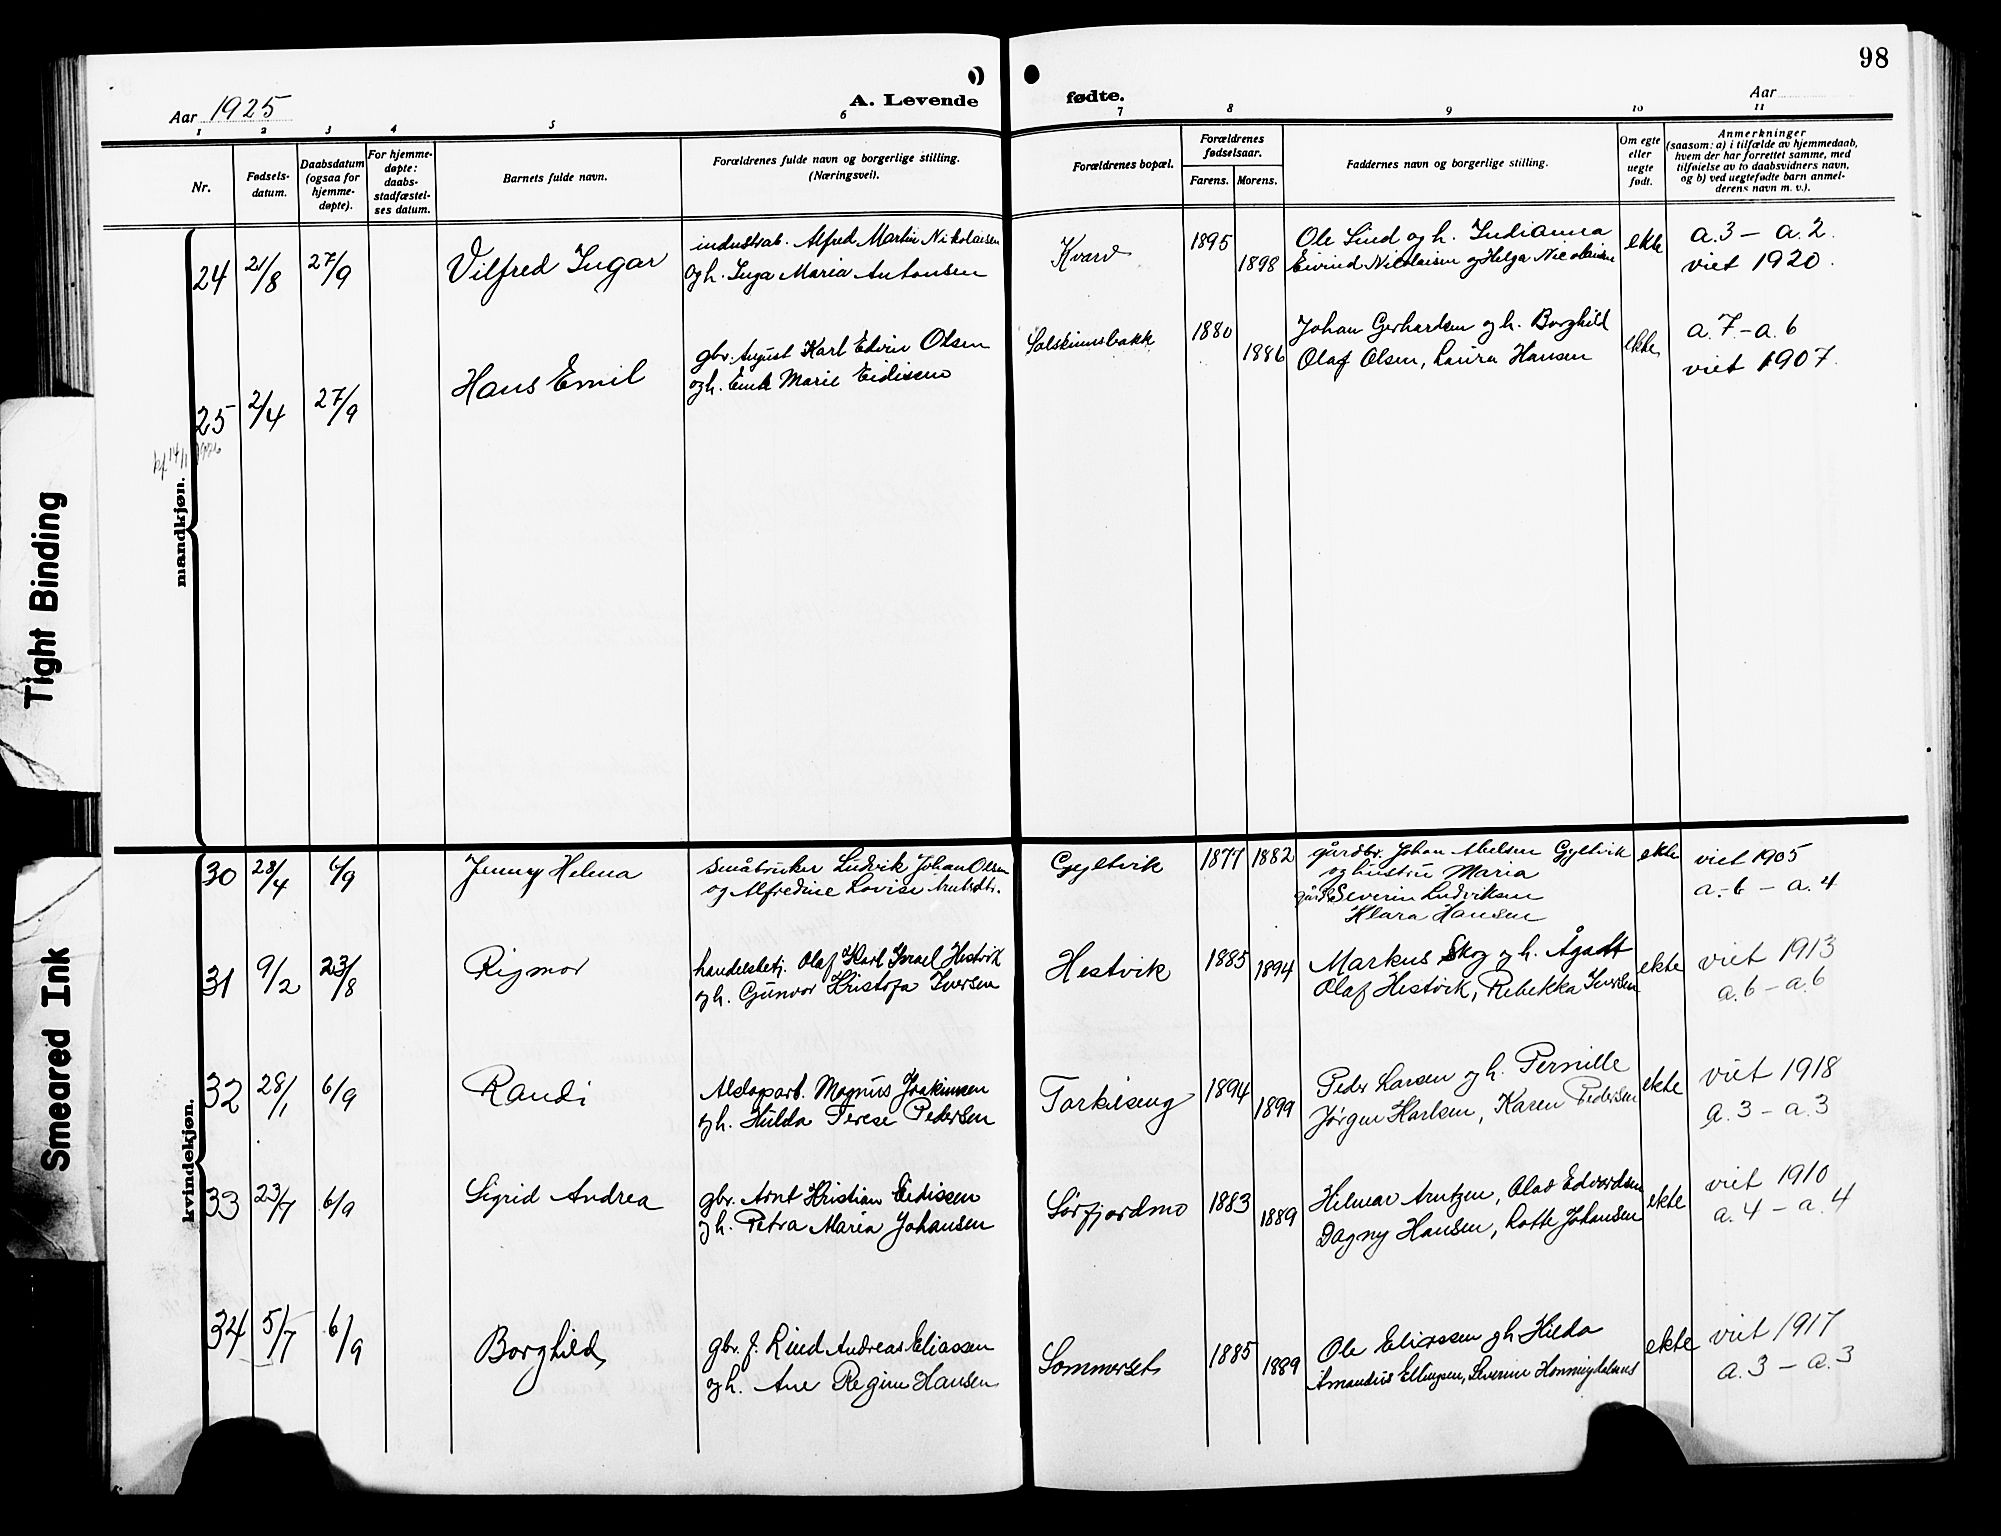 98
Aar 1925
A. Levende fødte.
Aar
1 2 3 4 5 6 7 8 9 10 11
Nr.
Fødsels-
datum.
Daabsdatum
(ogsaa for
hjemme-
døpte).
For hjemme-
døpte:
daabs-
stadfæstel-
ses datum.
Barnets fulde navn.
Forældrenes fulde navn og borgerlige stilling.
(Næringsvei).
Forældrenes bopæl.
Forældrenes
fødselsaar.
Farens. Morens.
Faddernes navn og borgerlige stilling.
Om egte
eller
uegte
født.
Anmerkninger
(saasom: a) i tilfælde av hjemmedaab,
hvem der har forrettet samme, med
tilføielse av to daabsvidners navn,
og b) ved uegtefødte barn anmel-
derens navn m. v.).
mandkjøn.
24 21/8 27/9 Vilfred Ingar
industriarb. Alfred Martin Nikolaisen
og h. Inga Maria Antonsen
Kvarv 1895 1898
Ole Lind og h. Indianna
Eivind Nicolaisen og Helga Nicolaisen
ekte
a.3 - a.2.
viet 1920.
25 2/4 27/9 Hans Emil
gbr. August Karl Edvin Olsen
og h. Emk Marie Eidissen
Solskinnsbakk 1880 1886
Johan Gerhardsen og h. Borghild
Olaf Olsen, Laura Hansen
ekte
a.7 - a.6
viet 1907.
kvindekjøn.
30 28/4 6/9 Jenny Helena
småbruker Ludvik Johan Olsen
og Alfredine Lovise Arntsdtr.
Gyltvik 1877 1882
gårdbr. Johan Abelsen Gyltvik
og hustru Maria
Severin Ludviksen
Klara Hansen
ekte
viet 1905
a.6 - a.4
31 9/2 23/8 Rigmor
handelsbetj. Olaf Karl Israel Hestvik
og h. Gunvor Kristofa Iversen
Hestvik 1885 1894
Markus Skog og h. Ågadt
Olaf Hestvik, Rebekka Iversen
ekte
viet 1913
a.6 - a.6
32 28/1 6/9 Randi
Magnus Joakimsen
og h. Hilda Terese Pedersen
Torkilseng 1894 1899
Peder Larsen og h. Pernille
Jørgen Karlsen, Karen Pedersen
ekte
viet 1918
a.3 - a.3
33 23/7 6/9 Sigrid Andrea
gbr. Arnt Kristian Eidissen
og h. Petra Maria Johansen
Sørfjordmo 1883 1889
Hilmar Arntzen, Olav Edvardsen
Dagny Hansen, Lotte Johansen
ekte
viet 1910
a.4 - a.4
34 5/7 6/9 Borghild
gbr. f. Lind Andreas Eliassen
og h. Ane Regine Hansen
Sommerset 1885 1889
Ole Eliassen og h. Hilda
Amandus Ellingsen, Severine
ekte
viet 1917
a.3 - a.3
Tight Binding
Smeared Ink